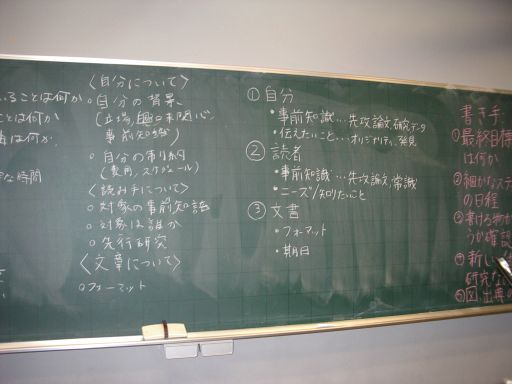 いることは何か
とは何か
は何か
な時間
〈自分について〉
○自分の背景、
(立場、興味関心、
事前知識)
○自分の制約
(費用、スケジュール)
〈読み手について〉
○対象の事前知識
○対象は誰か
○先行研究
〈文章について〉
○フォーマット
①自分
・事前知識…先攻論文,研究データ
・伝えたいこと…オリジナリティ、発見
②読者
・事前知識…先攻論文,常識
・ニーズ/知りたいこと
③文書
・フォーマット
・期日
書き手
①最終目標
は何か
②細かなステ
の日程
③書ける物か
うか確認
④新しい
研究な
⑤図、出典の